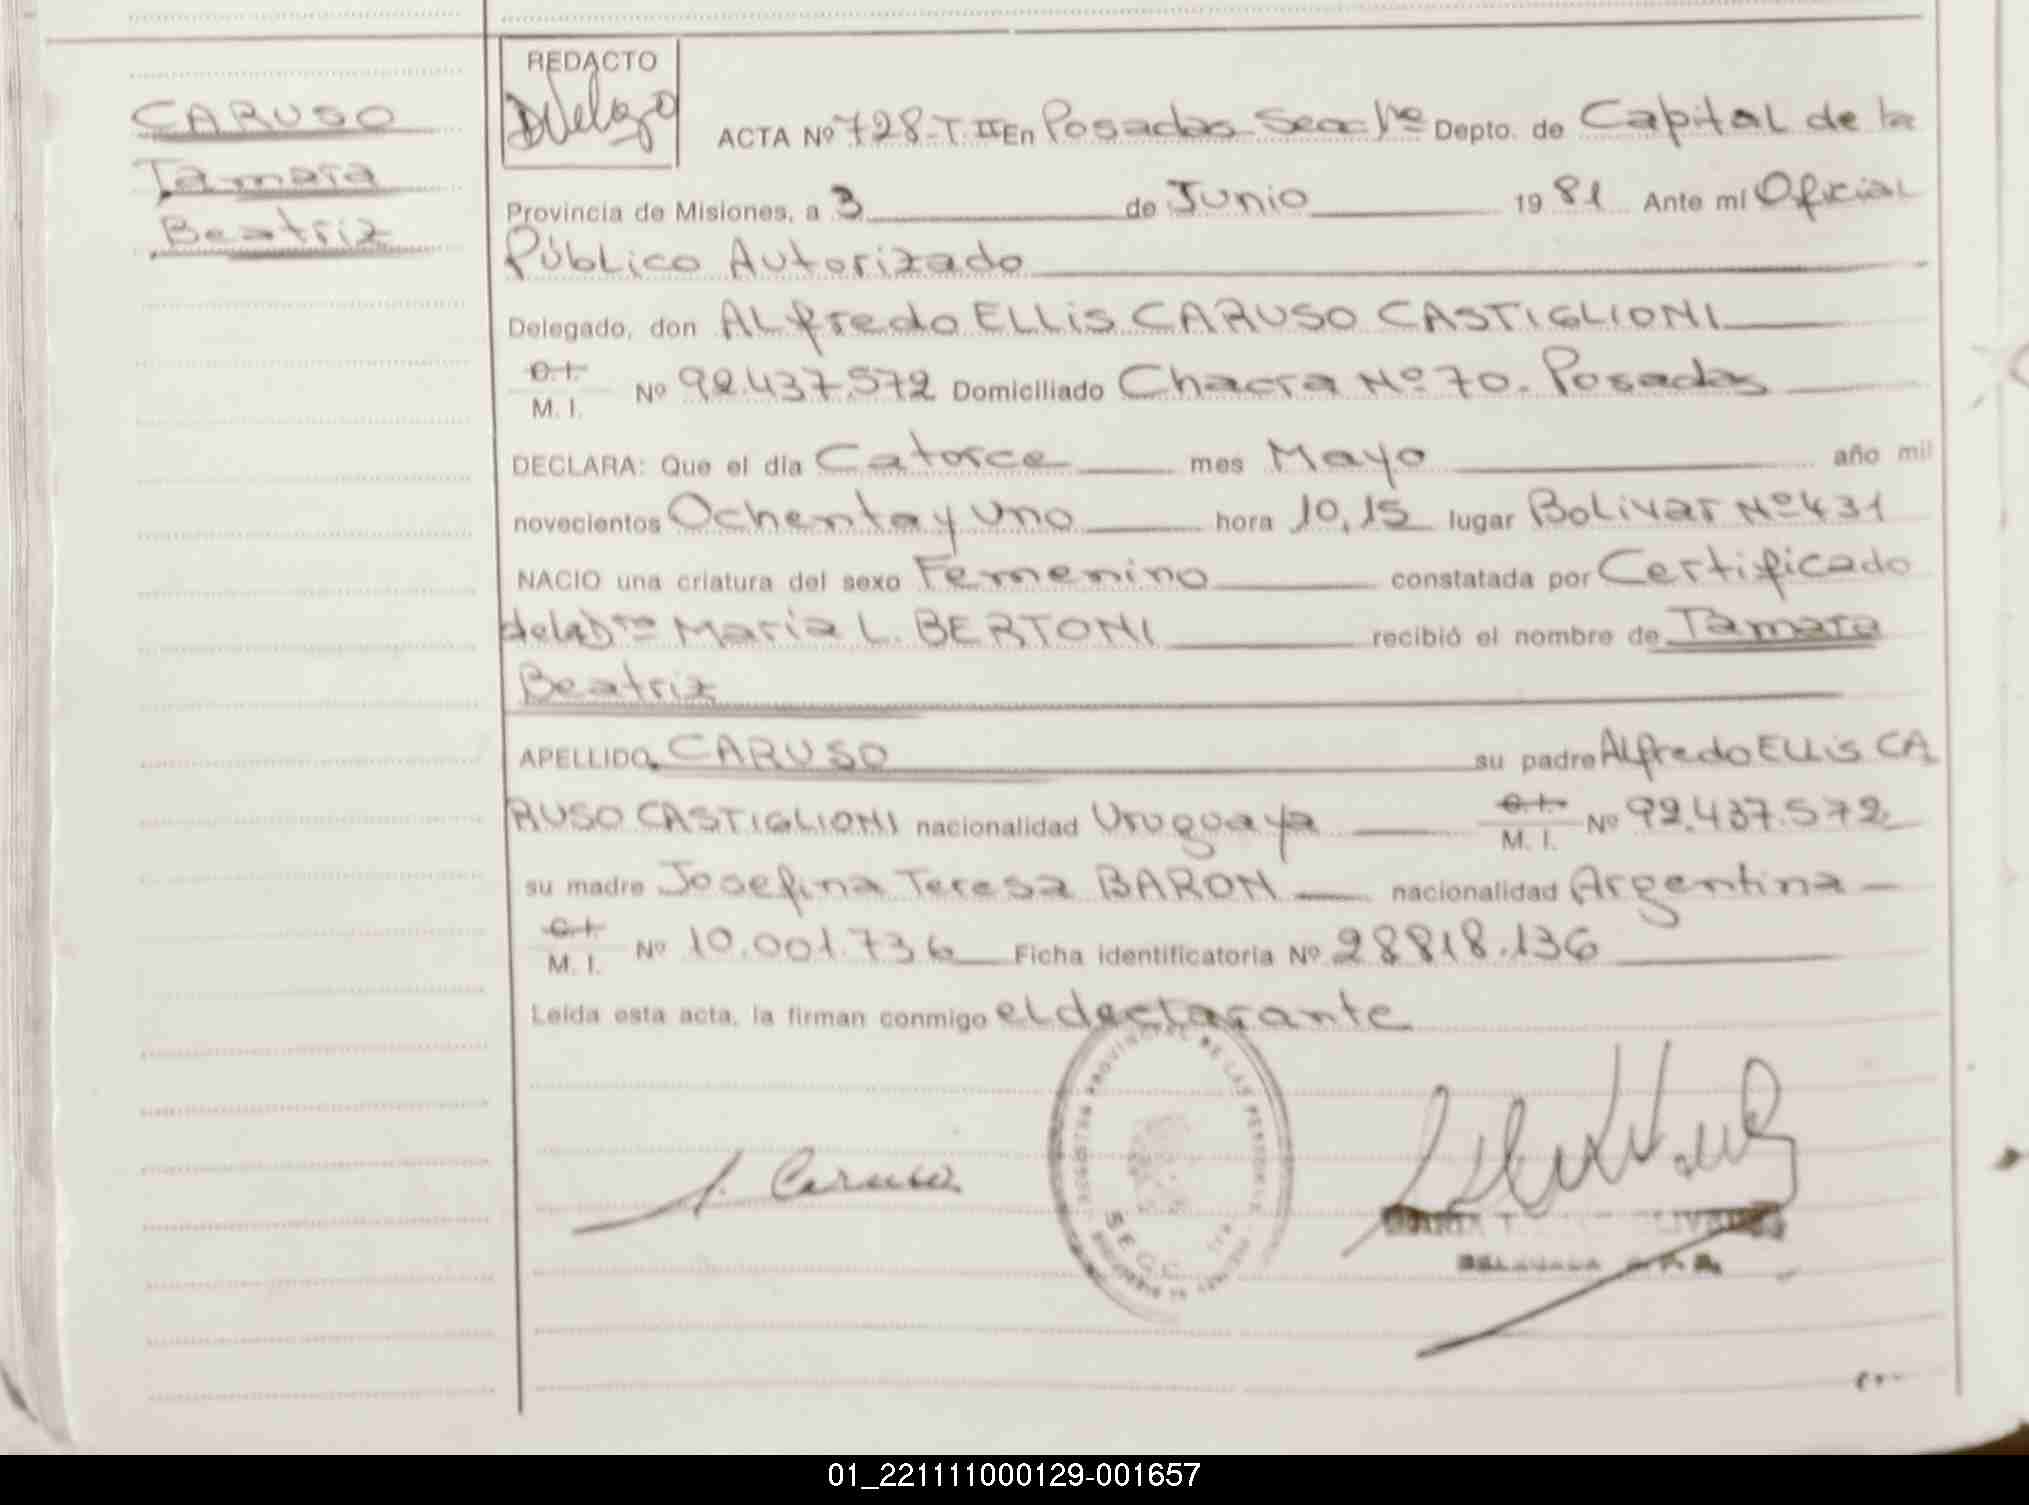 REDACTO
CARUSO
Tamara
Beatriz
ACTA Nº 728-T. II En Posadas Secc 1ra Depto. de Capital de la
Provincia de Misiones, a 3 de Junio 1981 Ante mí Oficial
Público Autorizado
Delegado, don ALfredo ELLis CARUSO CASTIGLIONI
C.I. M. I. Nº 92.437.572 Domiciliado Chacra Nº 70. Posadas
DECLARA: Que el día Catorce mes Mayo año mil
novecientos Ochenta y Uno hora 10,15 lugar Bolivar Nº 431
NACIO una criatura del sexo Femenino constatada por Certificado
de la Dra Maria L. BERTONI recibió el nombre de Tamara
Beatriz
APELLIDO CARUSO su padre ALfredo ELLis CA
RUSO CASTIGLIONI nacionalidad Uruguaya C.I. M. I. Nº 92.437.572
su madre Josefina Teresa BARON nacionalidad Argentina
C.I. M. I. Nº 10.001.736 Ficha identificatoria Nº 28818.136
Leída esta acta, la firman conmigo el declarante
Caruso
PROVINCIAL DE LAS PERSONAS
SECC. 1ra
MARIA T.
01_221111000129-001657